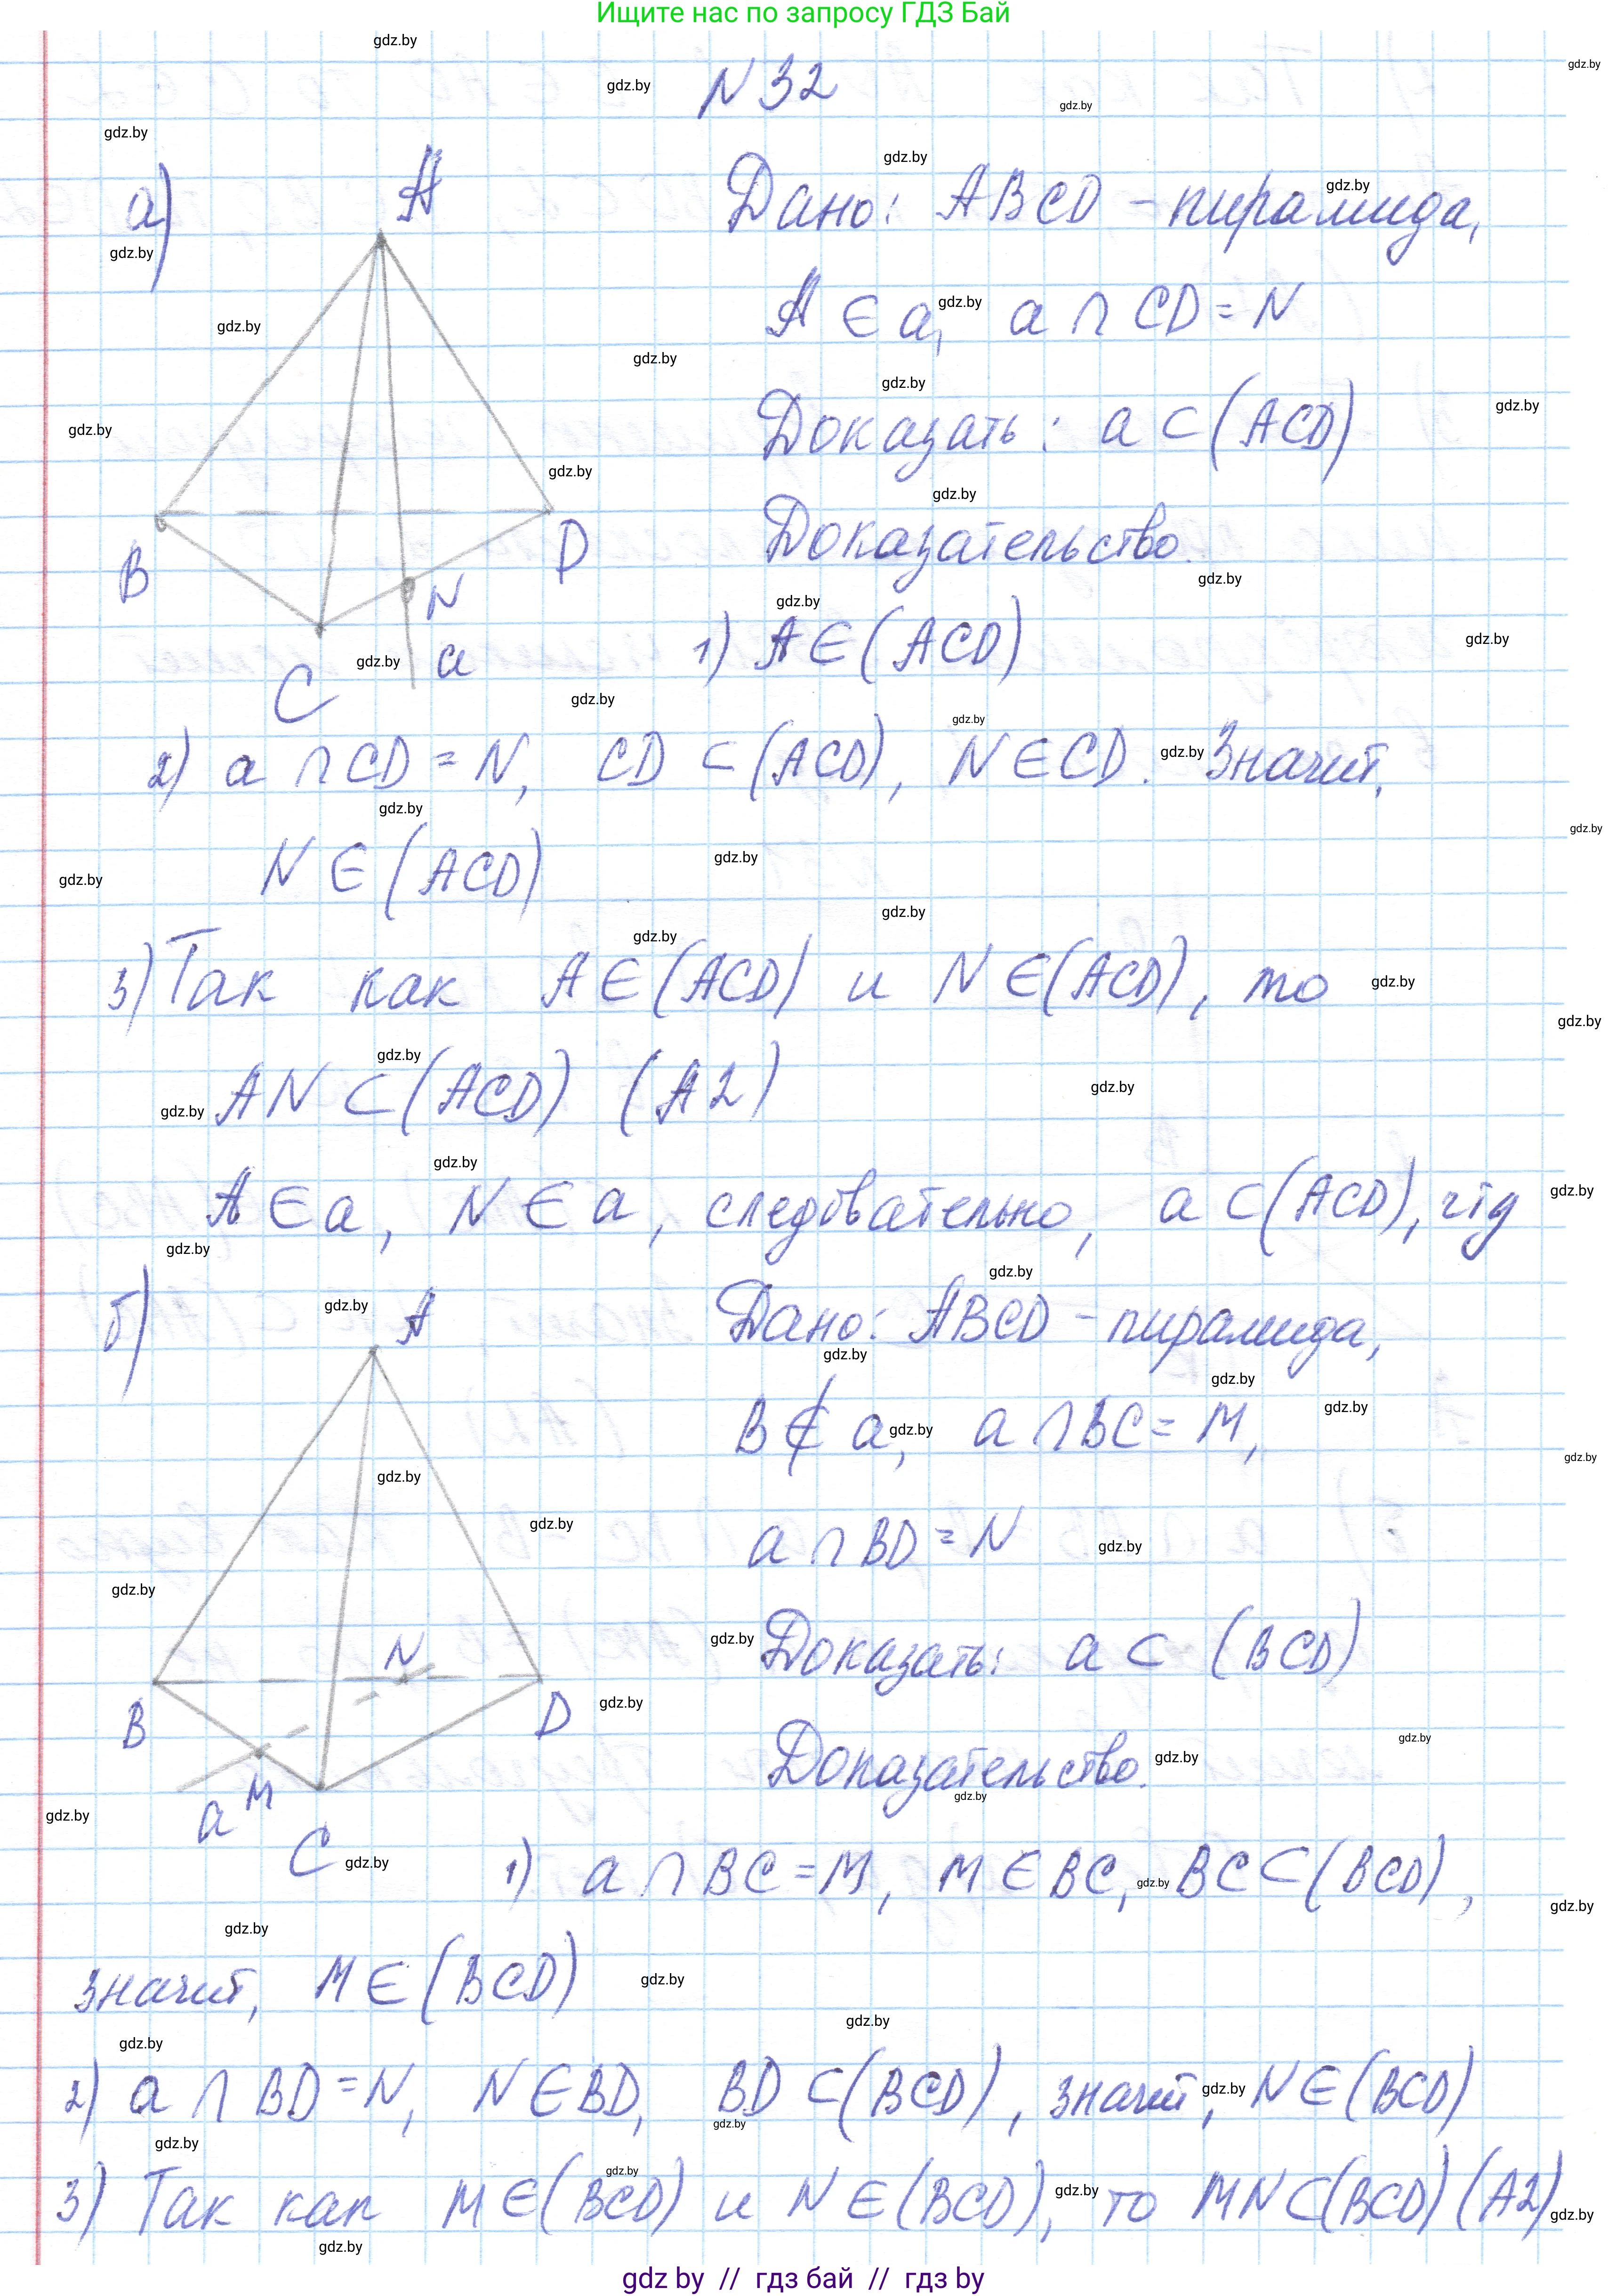 Ищите нас по запросу ГДЗ Бай
N 32
а)
Дано: ABCD - пирамида,
A ∈ a, a ∩ CD = N
Доказать: a ⊂ (ACD)
Доказательство.
A
B
C
D
N
a
1) A ∈ (ACD)
2) a ∩ CD = N, CD ⊂ (ACD), N ∈ CD. Значит,
N ∈ (ACD)
3) Так как A ∈ (ACD) и N ∈ (ACD), то
AN ⊂ (ACD) (A2)
A ∈ a, N ∈ a, следовательно, a ⊂ (ACD), чтд
б)
Дано: ABCD - пирамида,
B ∉ a, a ∩ BC = M,
a ∩ BD = N
Доказать: a ⊂ (BCD)
Доказательство.
A
B
N
D
M
a
C
1) a ∩ BC = M, M ∈ BC, BC ⊂ (BCD),
значит, M ∈ (BCD)
2) a ∩ BD = N, N ∈ BD, BD ⊂ (BCD), значит, N ∈ (BCD)
3) Так как M ∈ (BCD) и N ∈ (BCD), то MN ⊂ (BCD) (A2)
gdz by // гдз бай // гдз by